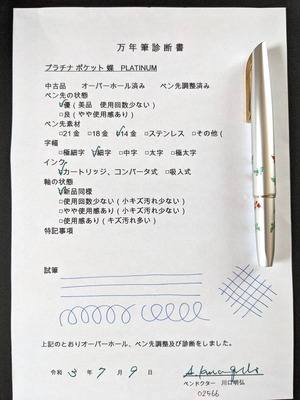 万年筆診断書
プラチナ ポケット 蝶 PLATINUM
中古品 オーバーホール済み ペン先調整済み
ペン先の状態
☑優(美品 使用回数少ない)
□良(やや使用感あり)
ペン先素材
□21金 □18金 ☑14金 □ステンレス □その他(
字幅
□極細字 ☑細字 □中字 □太字 □極太字
インク
☑カートリッジ、コンバータ式 □吸入式
軸の状態
☑新品同様
□使用回数少ない(小キズ汚れ少ない)
□やや使用感あり(小キズ汚れ少ない)
□使用感あり(キズ汚れ多い)
特記事項
試筆
上記のとおりオーバーホール、ペン先調整及び診断をしました。
令和 3年 7月 9日
ペンドクター 川口明弘
02566